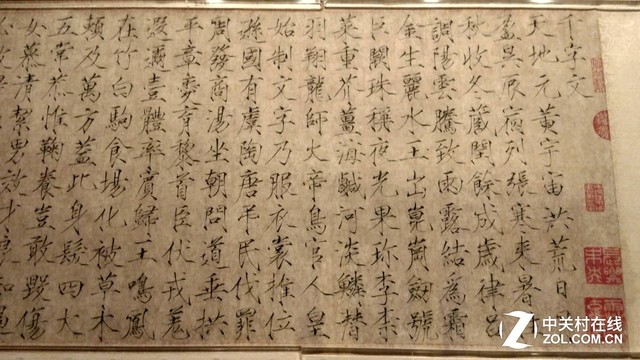 千字文
天地元黃宇宙洪荒日
盈昃辰宿列張寒來暑
秋收冬藏閏餘成歲律呂
調陽雲騰致雨露結為霜
金生麗水玉出崑岡劍號
巨闕珠稱夜光果珍李柰
菜重芥薑海鹹河淡鱗潛
羽翔龍師火帝鳥官人皇
始制文字乃服衣裳推位
遜國有虞陶唐弔民伐罪
周發商湯坐朝問道垂拱
平章愛育黎首臣伏戎羌
遐邇壹體率賓歸王鳴鳳
在竹白駒食場化被草木
賴及萬方蓋此身髮四大
五常恭惟鞠養豈敢毀傷
女慕清絜男效才良知過
中关村在线
ZOL.COM.CN